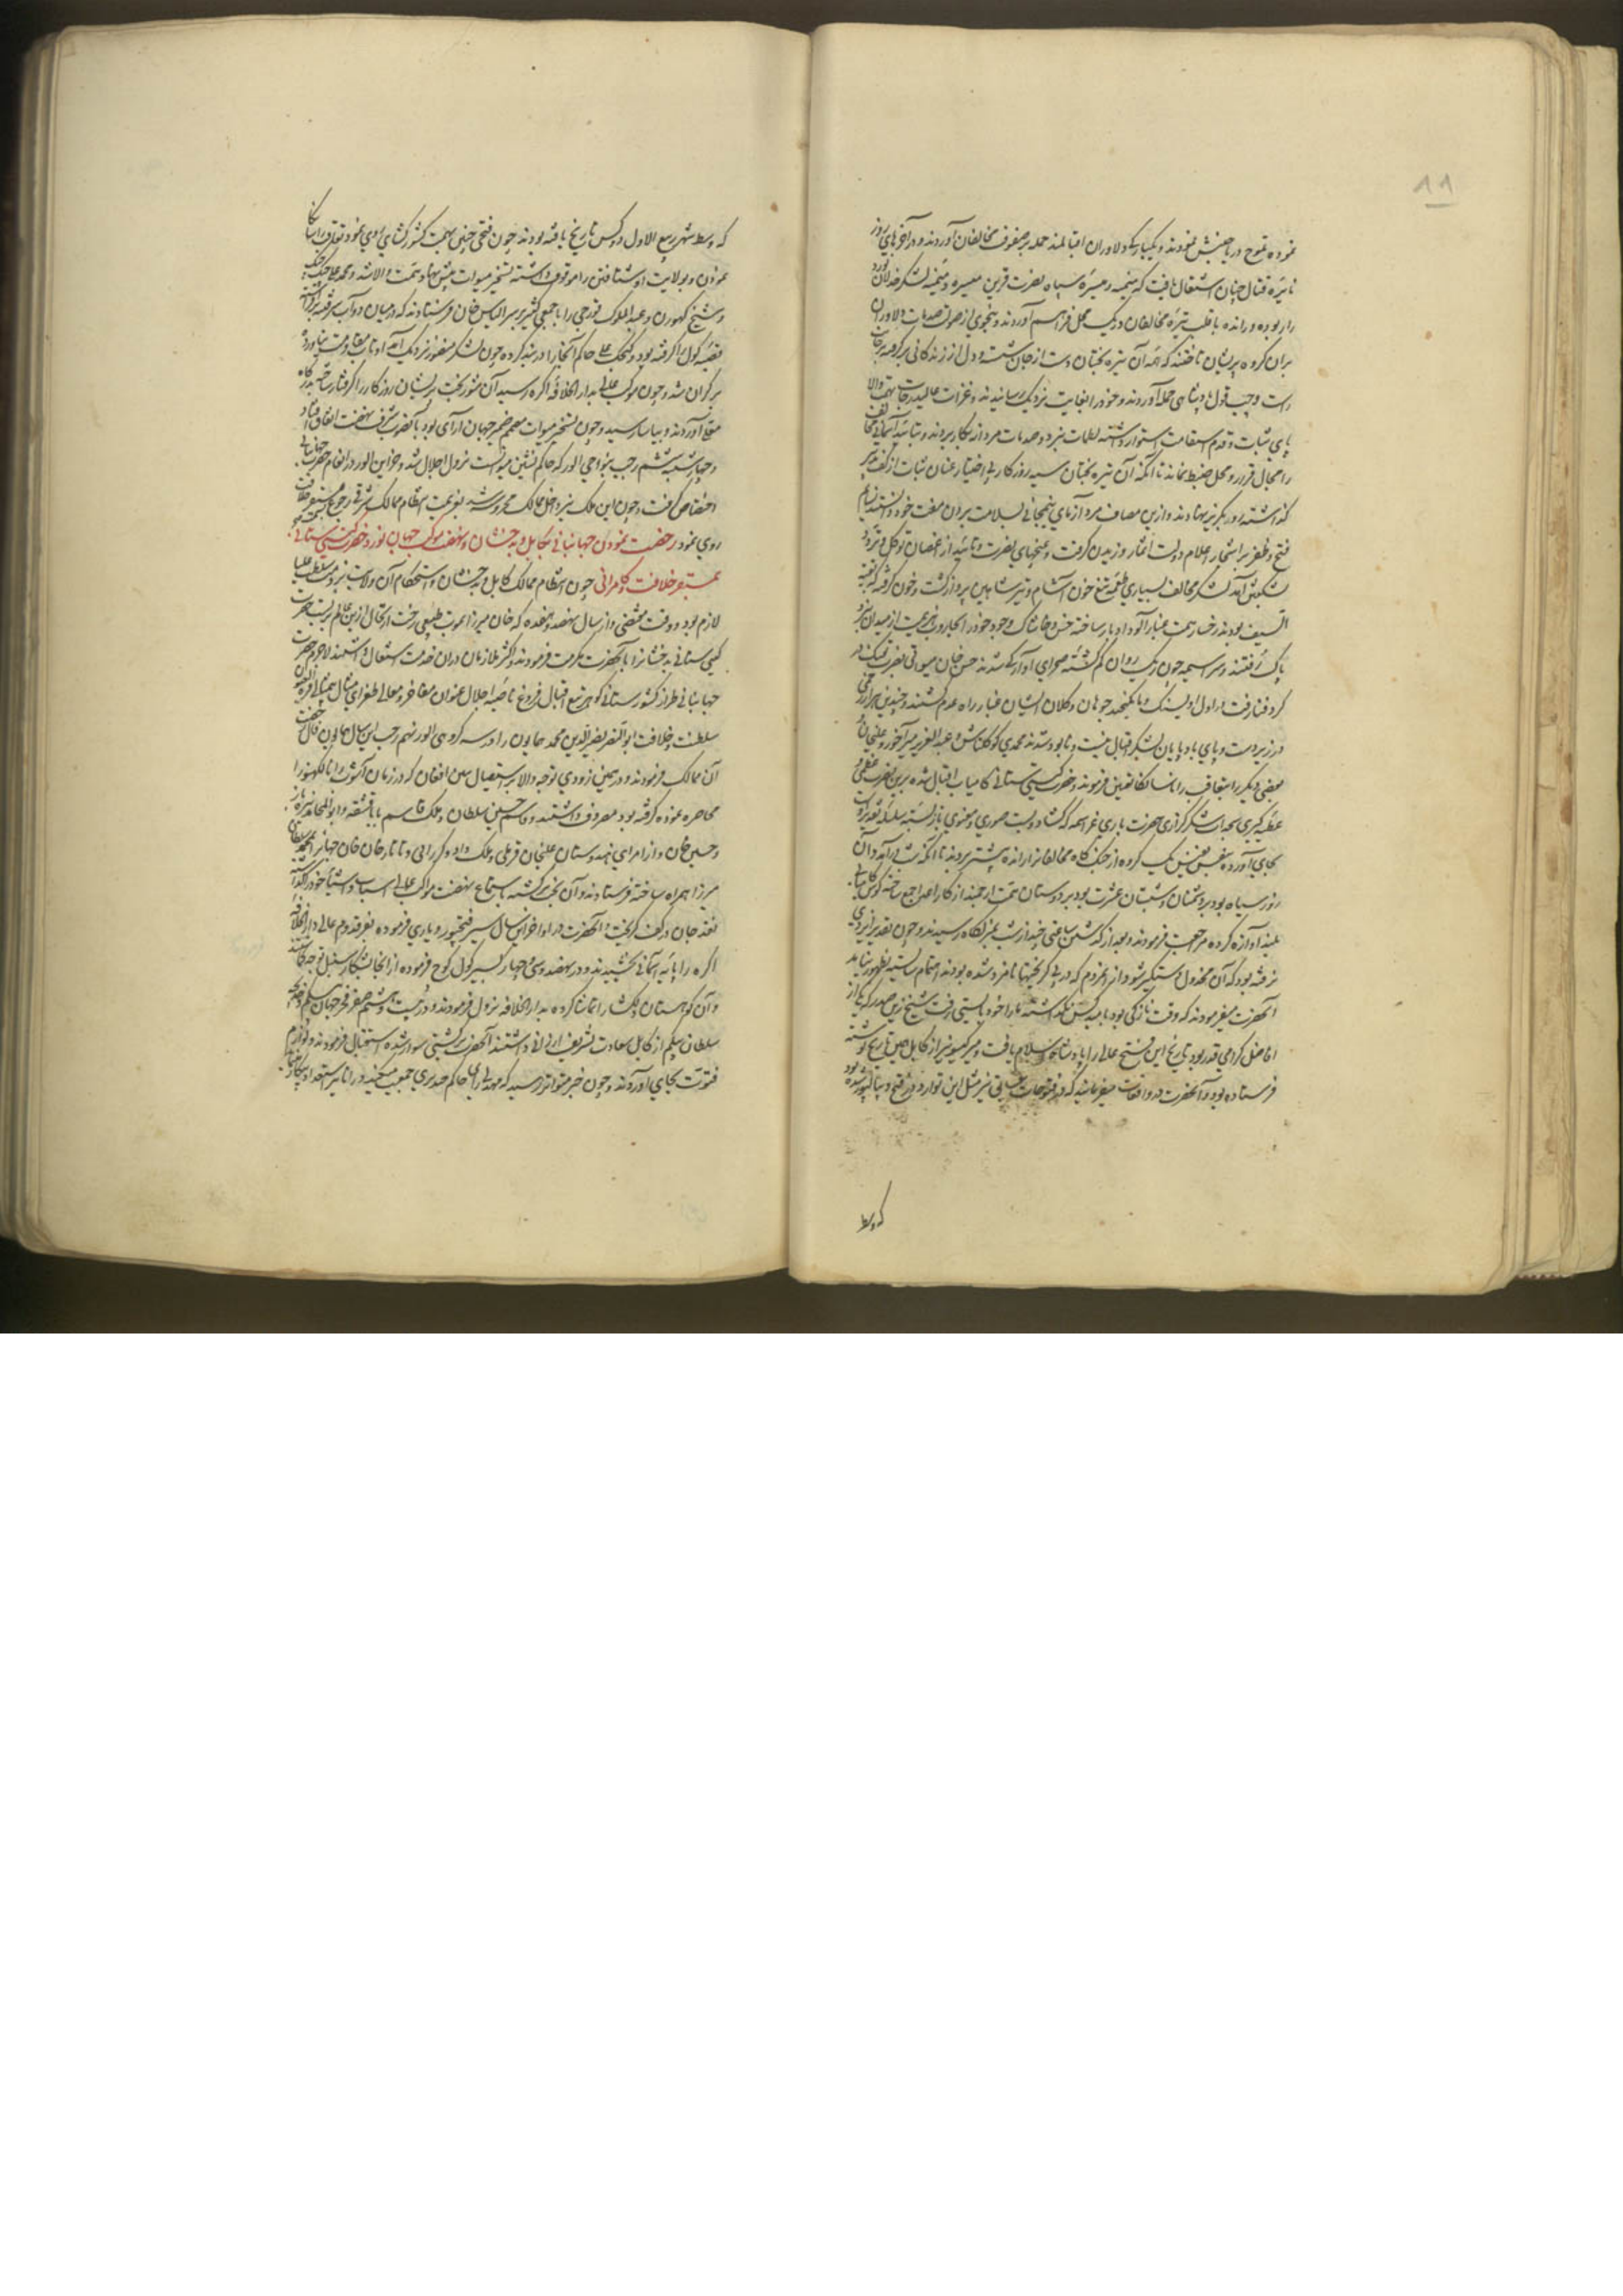 ۱۱
نموده بتموج دریا جنبش نمودند و یکبارگی دلاوران اقبالمند حمله بر صفوف مخالفان آوردند و در آخرهای روز
نایره قتال چنان اشتعال یافت که میمنه و میسره سپاه نصرت قرین میسره و میمنه لشکر خذلان
را ربوده و رانده با قلب تیره مخالفان در یک محل فراهم آوردند و بنحوی از صولت صدمات دلاوران
بران گروه پریشان تاختند که همه آن تیره بختان دست از جان شسته و دل از زندگانی برگرفته بر جانب
راست و چپ قول پادشاهی حمله آوردند و خود را بغایت نزدیک رسانیدند و غزات عالیدرجات بهمت والا
پای ثبات و قدم استقامت استوار داشته لطمات نبرد و صدمات مرد از بکار بردند و بتائید آسمانی مخالف
را مجال قرار و محل ضبط نماند تا آنکه آن تیره بختان سیه روزگار بی اختیار عنان ثبات از کف تدبیر
گذاشته رو بگریز نهادند و ازین مصاف مرد آزمای نیمجانی بسلامت بردن مفت خود دانستند نسایم
فتح و ظفر بر اشجار اعلام دولت اثمار وزیدن گرفت و غنچهای نصرت و تائید از اغصان توکل و تردد
شکفتن آمد لشکر مخالف بسیاری طعمه تیغ خون آشام و تیر شاهین پرواز گشت و خون گرفته که بقیة
السیف بودند رخسار همت غبارآلود ادبار ساخته خس و خاشاک وجود خود را بجاروب هزیمت از میدان نبرد
پاک رفتند و سراسیمه چون ریگ روان گم گشته صحرای آوارگی شدند حسن خان میواتی بضرب تفنگ در
گرد فنا رفت و راول اودیسنگ و مانکچند چوهان و کلان ایشان غبار راه عدم گشتند و چندین هزار زخمی
در زیر دست و پای بادپایان لشکر اقبال نیست و نابود شدند محمدی کوکلتاش و عبدالعزیز میر آخور و علیخان
بعضی دیگر را بتعاقب رانا سانکا تعین فرمودند و حضرت گیتی ستانی کامیاب اقبال شده برین نصرت عظمی و
عطیه کبری سجدات شکرگزاری حضرت باری عز اسمه که گشاد و بست صوری و معنوی باز بسته بسلسله تقدیر اوست
بجای آورده بنفس نفیس یک کروه از جنگ گاه مخالفانرا رانده پیشتر بردند تا آنکه شب درآمد و آن
روز سیاه بود بر دشمنان و شبستان عشرت بود بر دوستان همت ارجمند از کار اعدا جمع ساخته کوس کامیابی
بلند آوازه کرده مراجعت فرمودند و بعد از گذشتن ساعتی چند از شب بلشکرگاه رسیدند و چون تقدیر ایزدی
نرفته بود که آن مخذول دستگیر شود از مردم که در پی گریختها نامزد شده بودند اهتمام شایسته بظهور نیامد
آنحضرت میفرمودند که وقت نازکی بود بامید کس نگذاشته ما را خود بایستی رفت شیخ زین صدر که از
افاضل گرامی قدر بود تاریخ این فتح عالی را پادشاه اسلام یافت و میر گیسو نیز از کابل همین تاریخ نوشته
فرستاده بود و آنحضرت در واقعات میفرمایند که در فتوحات سابق نیز مثل این توارد در فتح دیبالپور شده بود
که وسط
که وسط شهر ربیع الاول دو کس تاریخ یافته بودند چون فتحی چنین بهمت کشور گشای روی نمود تعاقب رانا سانکا
نمودن و بولایت او شتافتن را موقوف داشته تسخیر میوات پیش نهاد همت والا شد و محمد علی جنگ جنگ
و شیخ گهورن و عبدالملوک قورچی را با جمعی کثیر بر سر الیاس خان فرستادند که در میان دوآب سر فتنه برداشته
قصبه کول را گرفته بود و کچک علی حاکم آنجا را در بند کرده چون لشکر منصور نزدیک آمد او تاب مقاومت نیاورده
بر کران شد و چون موکب عالی بدار الخلافه اگره رسید آن شور بخت پریشان روزگار را گرفتار ساخته بدرگاه
معلی آوردند و بیاسا رسید و چون تسخیر میوات مصمم ضمیر جهان آرای بود بآنطرف شرف نهضت اتفاق افتاد
و چهارشنبه ششم رجب بنواحی الور که حاکم نشین میواتست نزول اجلال شد و خزاین الور در انعام حضرت جهانبانی
اختصاص گرفت و چون این ملک نیز داخل ممالک محروسه شد بعزیمت انتظام ممالک شرقی رجوع بمستقر خلافت
روی نمود رخصت نمودن جهانبانی بکابل و بدخشان و نهضت موکب جهان نورد حضرت گیتی ستانی
بمستقر خلافت و کامرانی چون انتظام ممالک کابل و بدخشان و استحکام آن ولایت بر ذمت سلطنت علیا
لازم بود و وقت مقتضی و از سال نهصد و هفده که خان میرزا بموت طبیعی رخت ارتحال ازین عالم بربست حضرت
گیتی ستانی بدخشانرا بآنحضرت مکرمت فرمودند و اکثر ملازمان دران خدمت اشتغال داشتند لاجرم حضرت
جهانبانی طراز کشورستانی گوهر تیغ اقبال فروغ ناصیه اجلال عنوان مفاخر و معالی طغرای مثال بیمثالی قرة العین
سلطنت و خلافت ابوالنصر نصیرالدین محمد همایون را در سه کروهی الور نهم رجب این سال همایون فال رخصت
آن ممالک فرمودند و در همین زودی توجه والا بر استیصال ببن افغان که در زمان آشوب رانا لکهنو را
محاصره نموده گرفته بود مصروف داشتند و قاسم حسین سلطان و ملک قاسم بابا قشقه و ابوالمحمد نیزه باز
و حسین خان و از امرای هندوستان علیخان فرملی و ملک داد کررانی و تاتار خان خان جهانرا بمحمد سلطان
میرزا همراه ساخته فرستادند و آن بخت برگشته باستماع نهضت مواکب عالی اسباب و اشیاء خود را گذاشته
نقد جان در کف گریخت و آنحضرت در اواخر این سال سیر فتحپور و باری فرموده بفر قدوم عالی دارالخلافه
اگره را پایه آسمانی بخشیدند و در نهصد و سی و چهار بسیر کول کوچ فرموده از آنجا بشکار سنبل توجه نمودند
و آن کوهستان دلگشا را تماشا کرده بدارالخلافه نزول فرمودند و در بیست و هشتم صفر فخر جهان بیگم و خدیجه
سلطان بیگم از کابل سعادت تشریف ارزانی داشتند آنحضرت بر کشتی سوار شده استقبال فرمودند و لوازم
فتوت بجای آوردند و چون خبر متواتر رسید که مدنی رای حاکم چندیری جمعیت میکند و رانا نیز استعداد پیکار